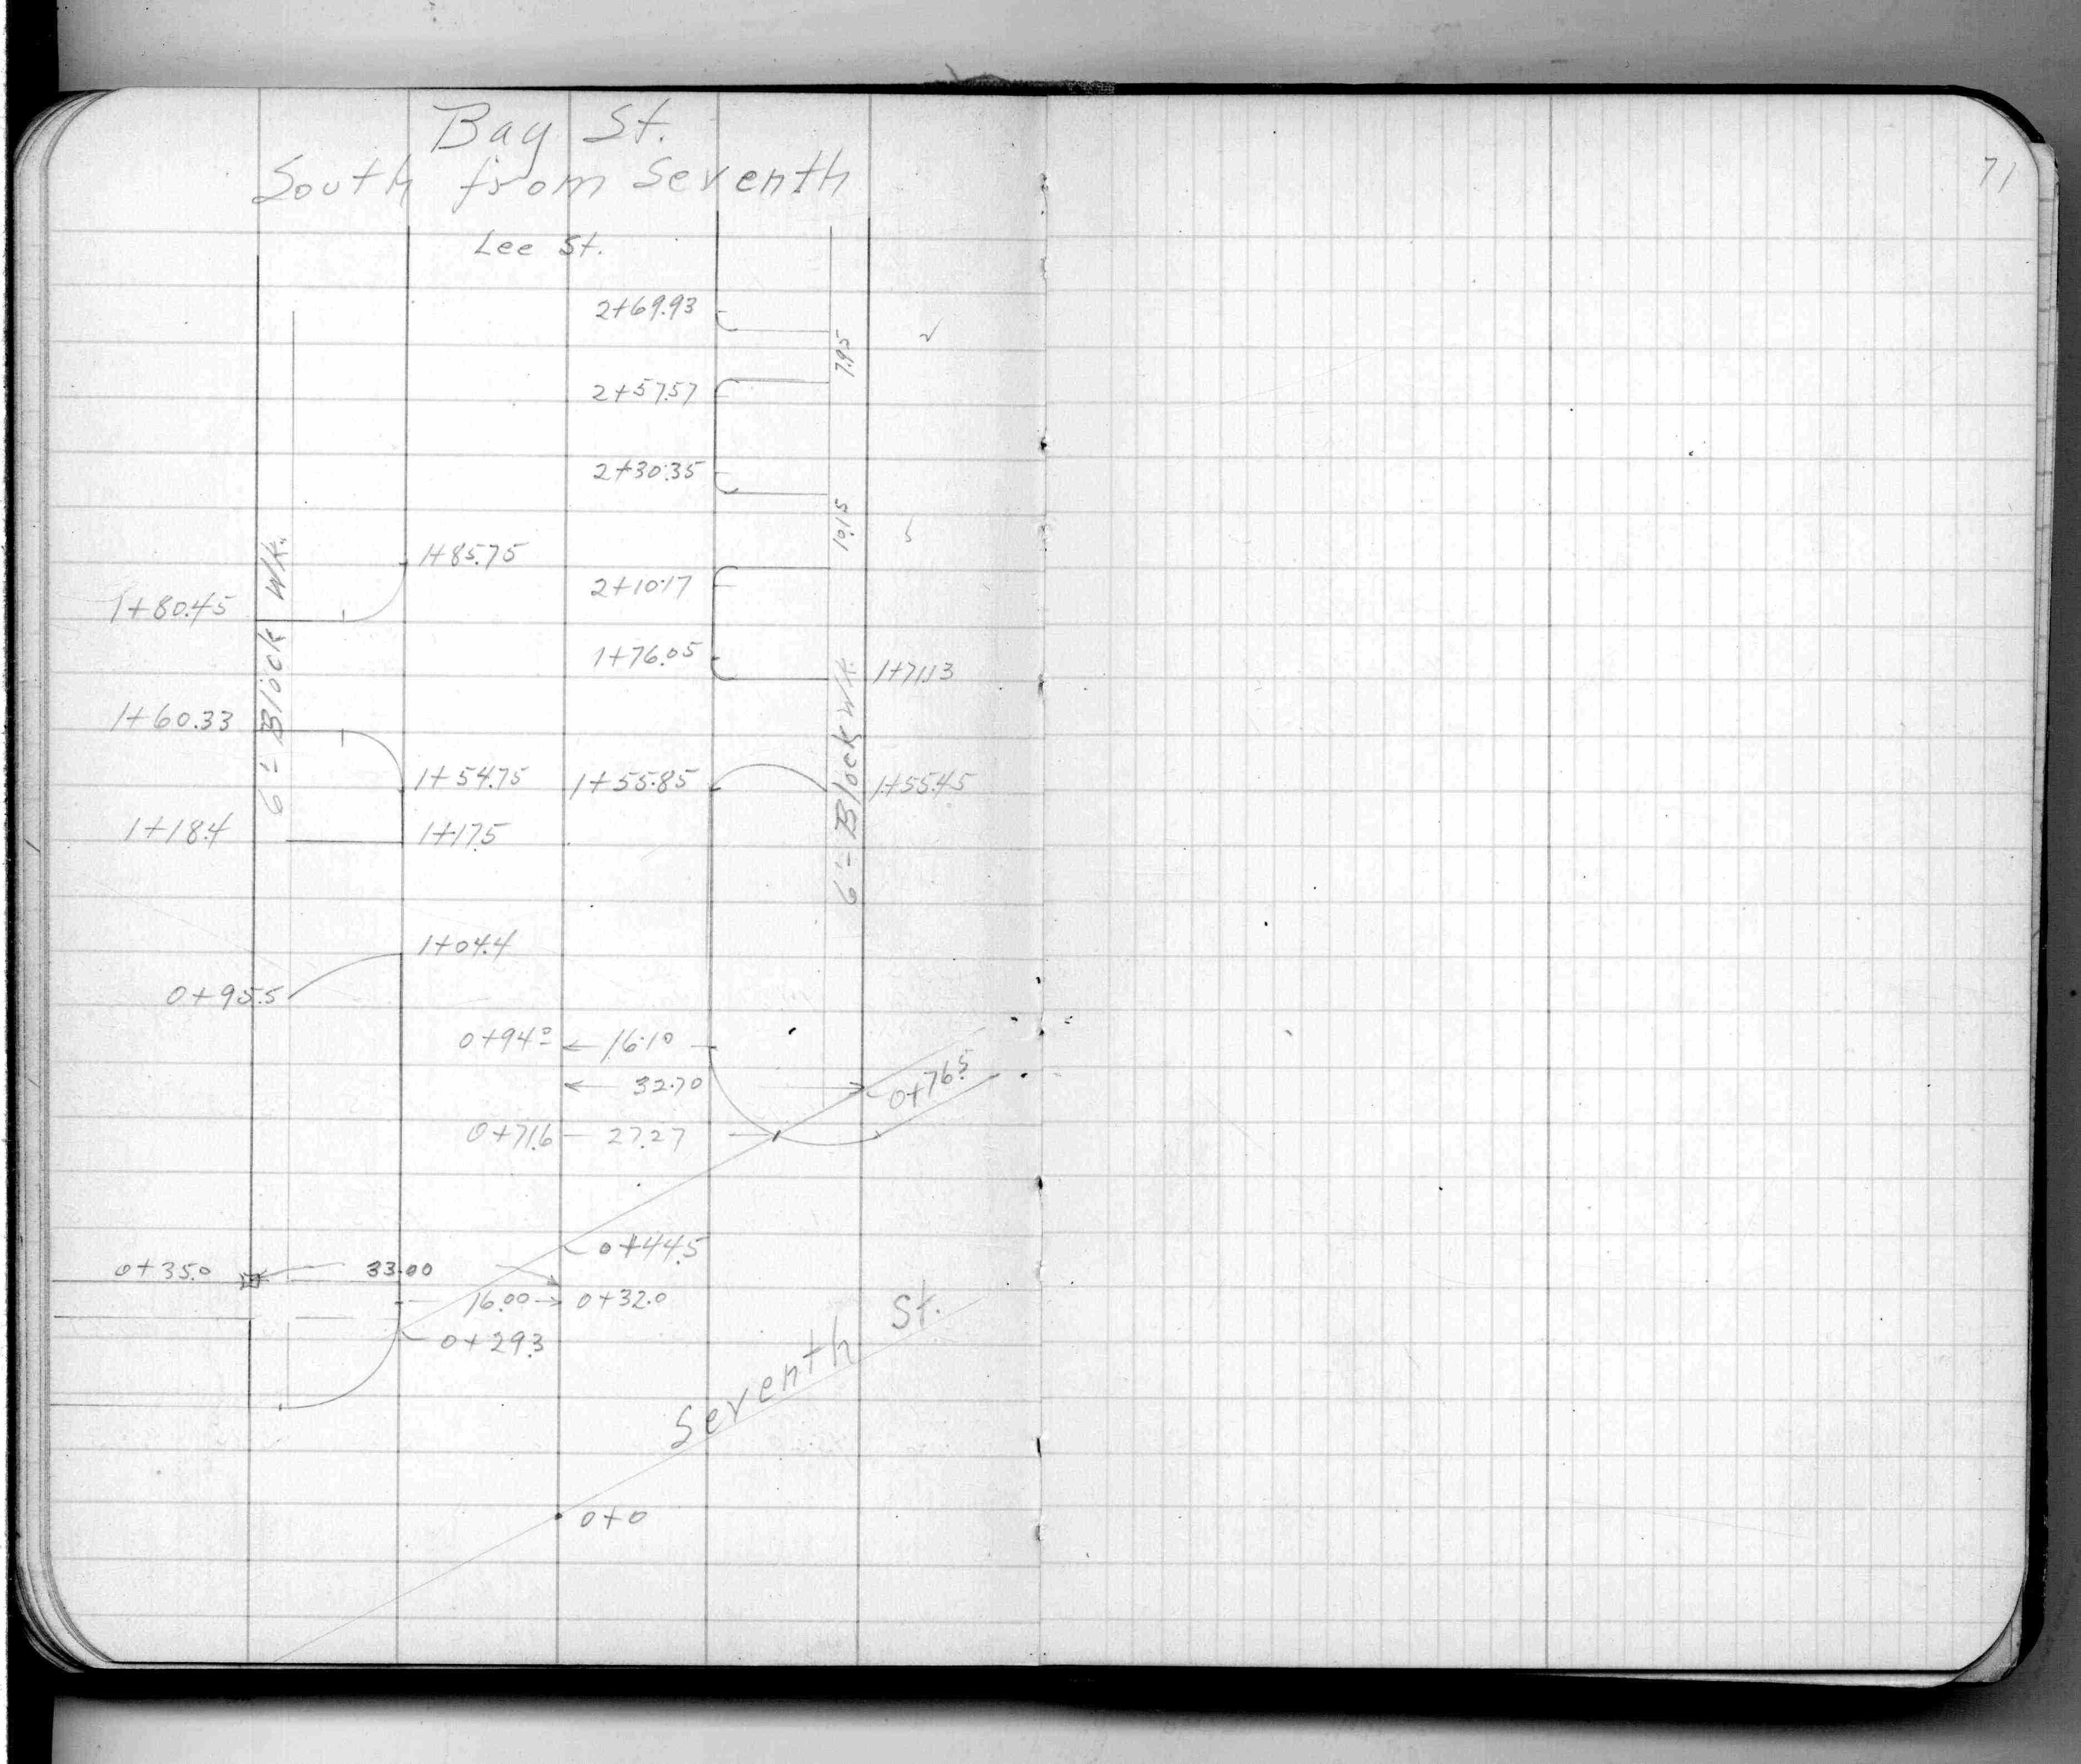 Bay St.
South from Seventh
71
Lee St.
2+69.93
7.95
2+57.57
2+30.35
10.15
1+85.75
2+10.17
1+80.45
6'- Block Wk.
1+76.05
1+71.13
1+60.33
6'- Block Wk.
1+54.75 1+55.85 1+55.45
1+18.4 1+17.5
1+04.4
0+95.5
0+94.0 16.10
32.70 0+76.5
0+71.6 27.27
0+44.5
0+35.0 33.00
16.00 0+32.0
0+29.3
Seventh St.
0+0